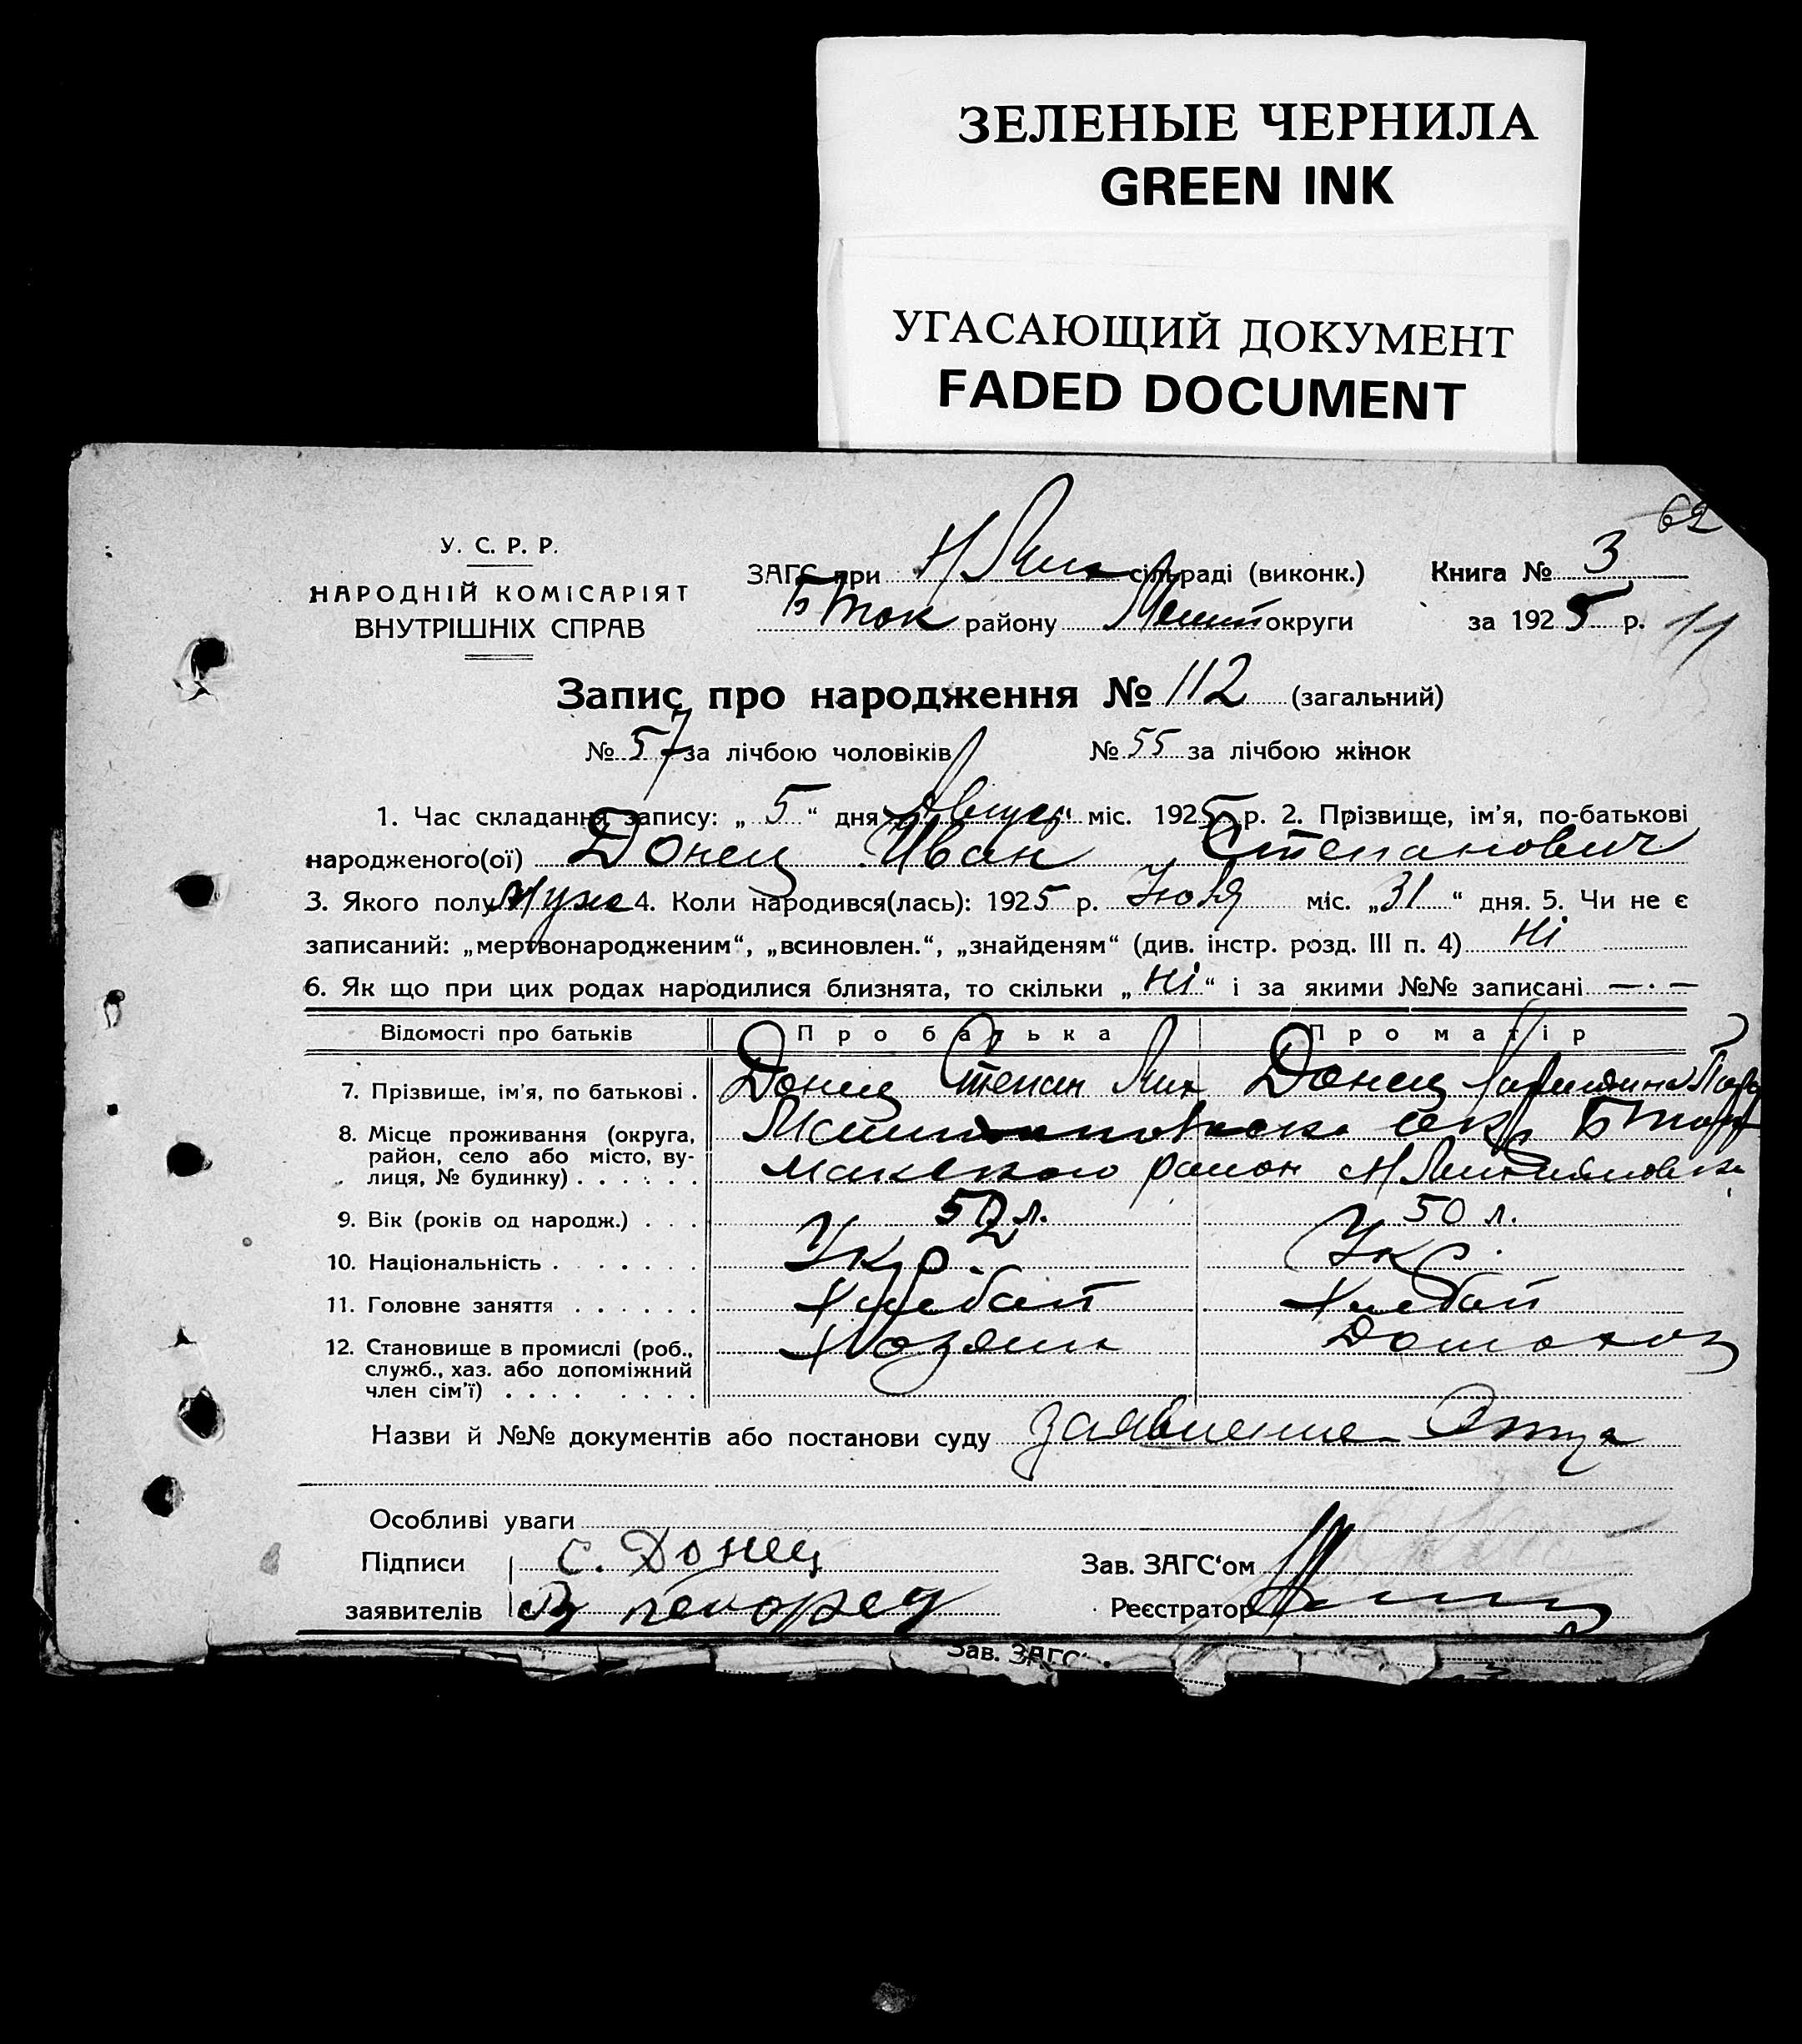 ЗЕЛЕНЫЕ ЧЕРНИЛА
GREEN INK
УГАСАЮЩИЙ ДОКУМЕНТ
FADED DOCUMENT
62
У. С. Р. Р.
НАРОДНІЙ КОМІСАРІЯТ
ВНУТРІШНІХ СПРАВ
ЗАГС при сільраді (виконк.) Книга № 3
Бток району округи за 1925 р. 11
Запис про народження № 112 (загальний)
№ 57 за лічбою чоловіків № 55 за лічбою жінок
1. Час складання запису: „ 5 “ дня Август міс. 1925 р. 2. Прізвище, ім'я, по-батькові
народженого(ої) Донец Иван Степанович
3. Якого полу Муж 4. Коли народився(лась): 1925 р. Июля міс. „31“ дня. 5. Чи не є
записаний: „мертвонародженим“, „всиновлен.“, „знайденям“ (див. інстр. розд. III п. 4) Ні
6. Як що при цих родах народилися близнята, то скільки „ Ні “ і за якими №№ записані — . —
Відомості про батьків Про батька Про матір
7. Прізвище, ім'я, по батькові . Донец Степан Донец
8. Місце проживання (округа, район, село або місто, вулиця, № будинку) окр район
9. Вік (років од народж.) . . . 52 л. 50 л.
10. Національність . . . . . . . Укр. Укр.
11. Головне заняття . . . . . . Хлебоп Хлебоп
12. Становище в промислі (роб., Хозяин Домохоз
служб., хаз. або допоміжний
член сім'ї) . . . . . . . . .
Назви й №№ документів або постанови суду заявление Отца
Особливі уваги
Підписи С. Донец Зав. ЗАГС'ом
заявителів Реєстратор
Зав. ЗАГС'